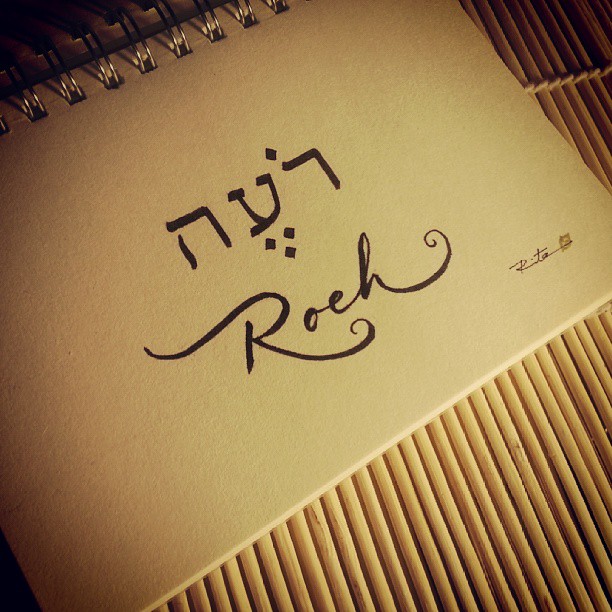 רֹעֶה
Roeh
Rita